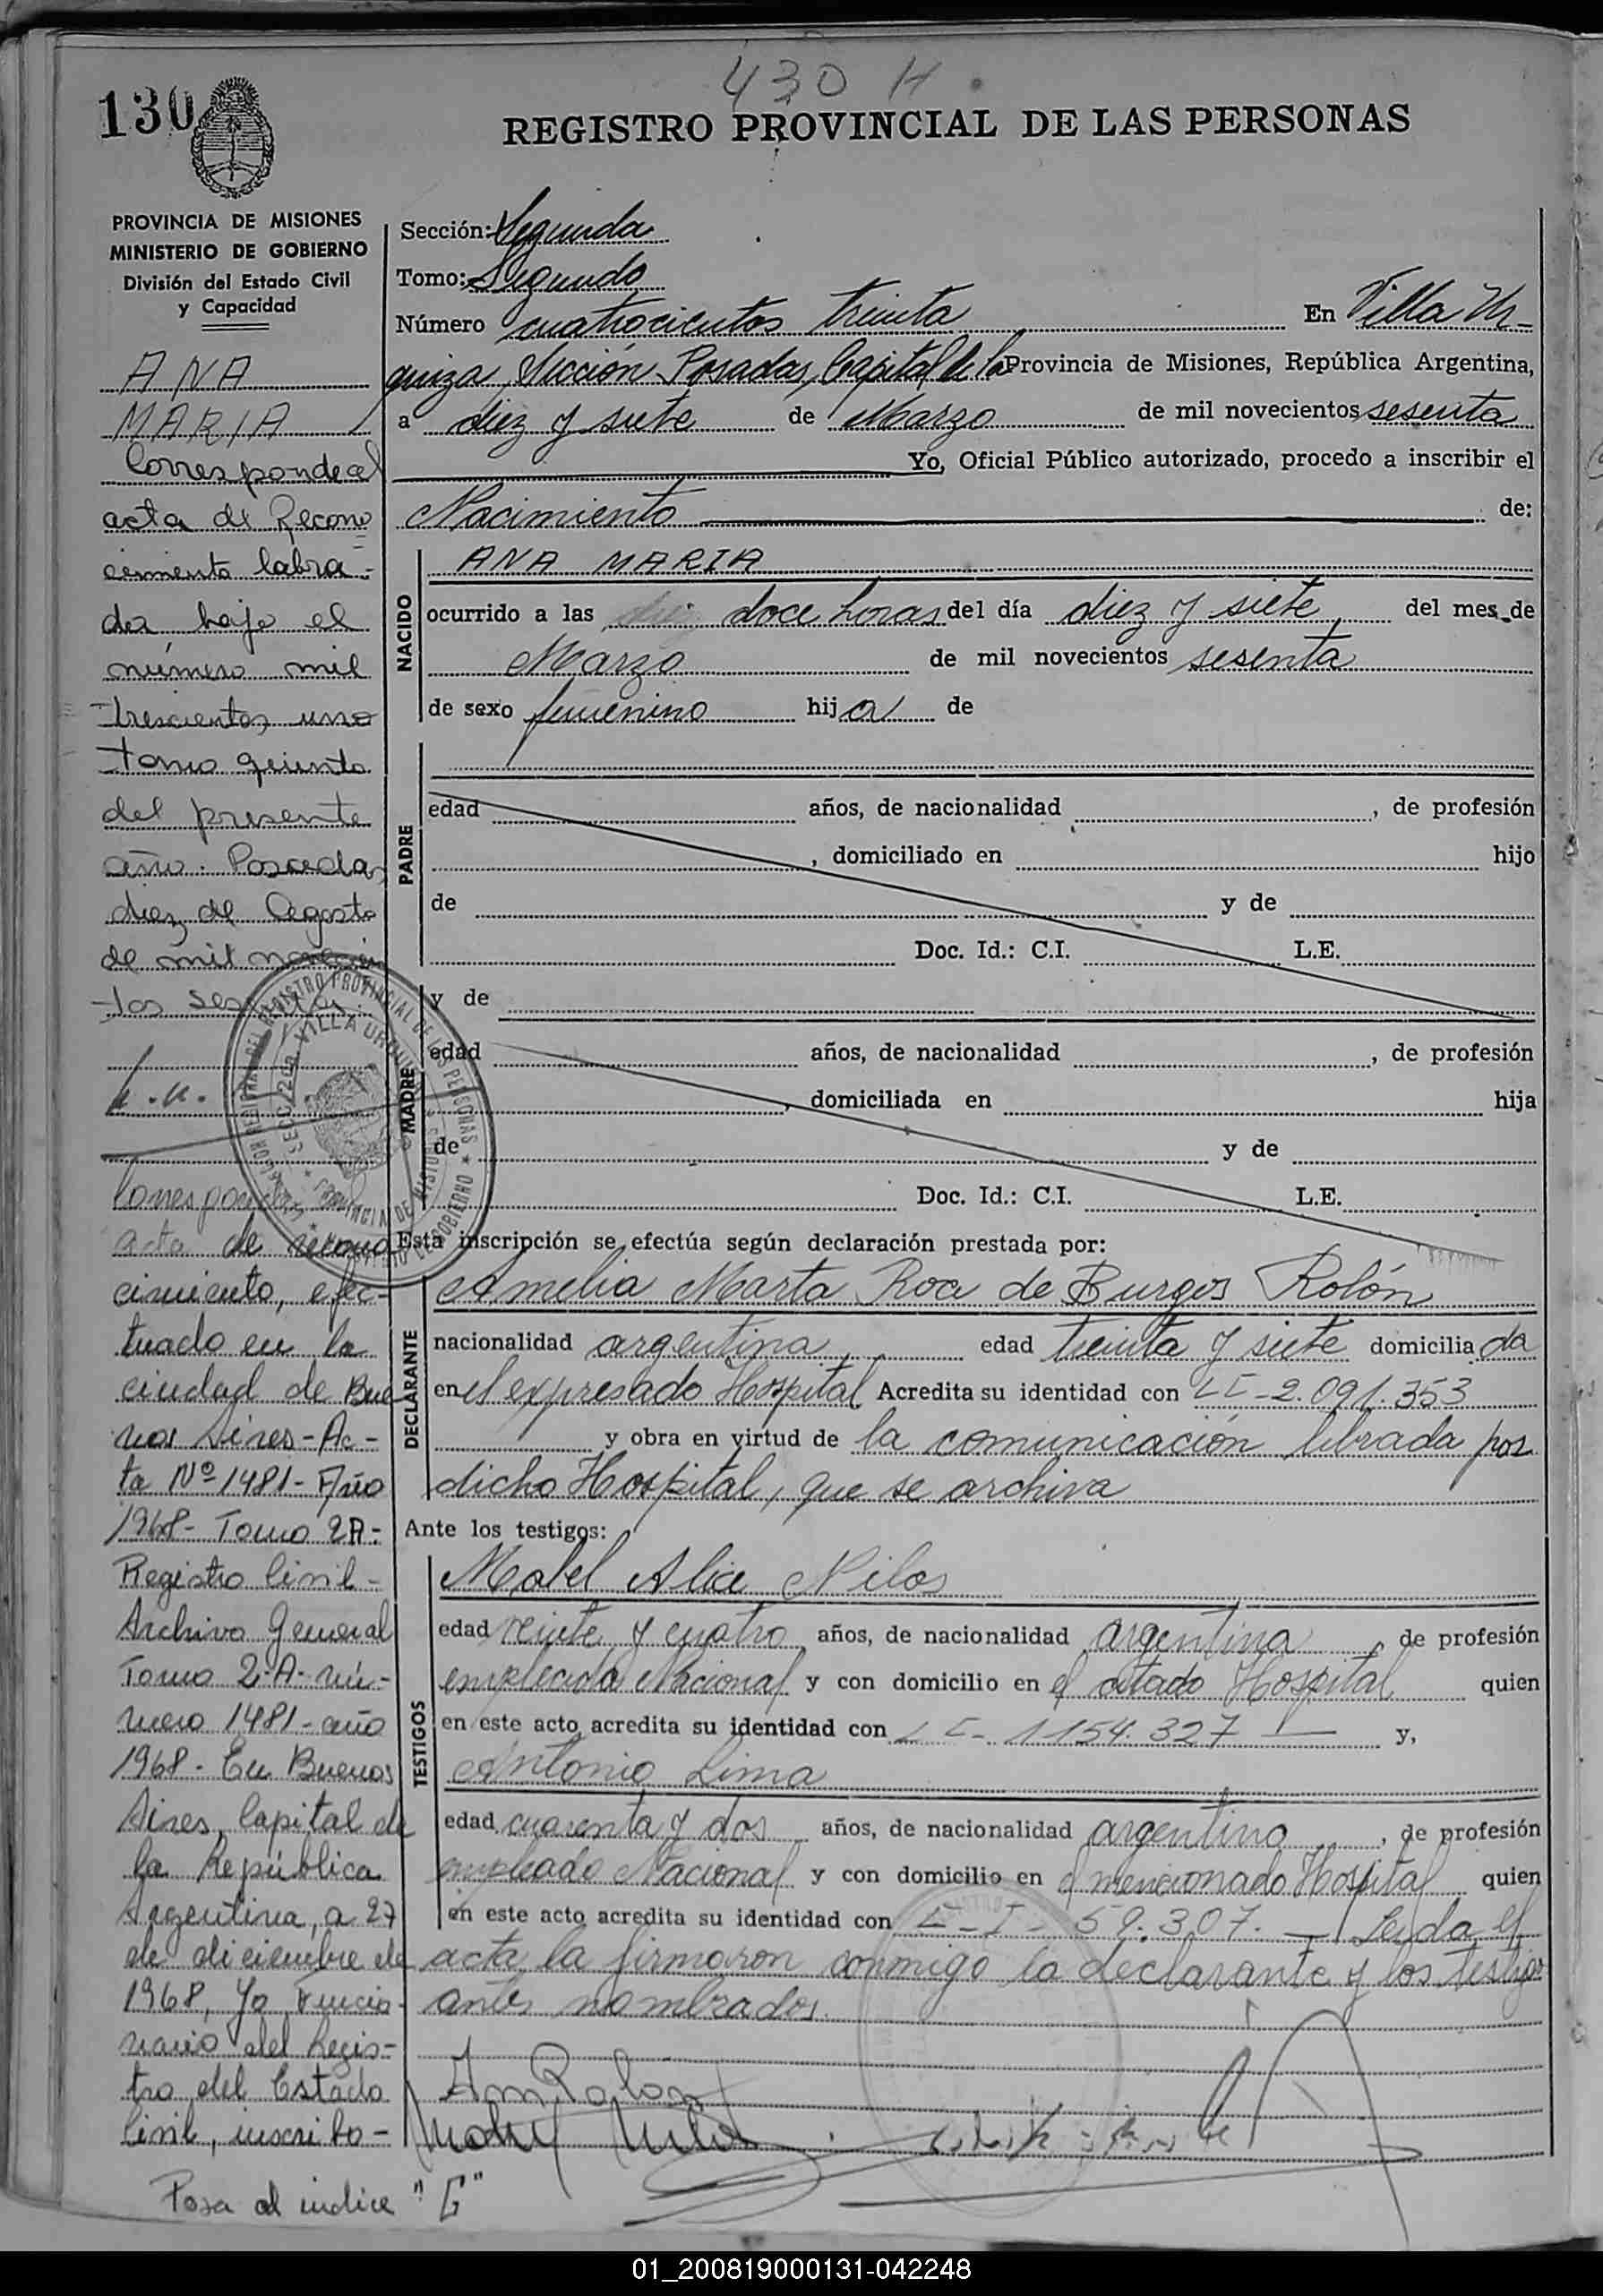 430 H.
130
REGISTRO PROVINCIAL DE LAS PERSONAS
PROVINCIA DE MISIONES
MINISTERIO DE GOBIERNO
División del Estado Civil
y Capacidad
ANA
MARIA
Corresponde al
acta de Recono
cimiento labra-
da bajo el
número mil
trescientos uno
tomo quinto
del presente
año. Posadas
diez de Agosto
de mil novecien
tos sesenta.
Corresponde
acta de recono
cimiento, efec-
tuado en la
ciudad de Bue
nos Aires-Ac-
ta Nº 1481-Año
1968- Tomo 2A-
Registro Civil-
Archivo General
Tomo 2-A- nú-
mero 1481-año
1968- En Buenos
Aires, Capital de
la República
Argentina, a 27
de diciembre de
1968, Yo Funcio-
nario del Regis-
tro del Estado
Civil, inscribo-
Pasa al indice "G"
Sección: Segunda
Tomo: Segundo
Número cuatrocientos treinta En Villa Ur-
quiza, Sección Posadas, Capital de la Provincia de Misiones, República Argentina,
a diez y siete de Marzo de mil novecientos sesenta
Yo, Oficial Público autorizado, procedo a inscribir el
Nacimiento de:
NACIDO
ANA MARIA
ocurrido a las doce horas del día diez y siete del mes de
Marzo de mil novecientos sesenta
de sexo femenino hija de
PADRE
edad años, de nacionalidad , de profesión
, domiciliado en hijo
de y de
Doc. Id.: C.I. L.E.
y de
MADRE
edad años, de nacionalidad , de profesión
, domiciliada en hija
de y de
Doc. Id.: C.I. L.E.
Esta inscripción se efectúa según declaración prestada por:
DECLARANTE
Amelia Marta Roa de Burgos Rolón
nacionalidad argentina, edad treinta y siete domiciliada
en el expresado Hospital Acredita su identidad con 2.091.353
y obra en virtud de la comunicación librada por
dicho Hospital, que se archiva
Ante los testigos:
TESTIGOS
Mabel Alice Nilos
edad veinte y cuatro años, de nacionalidad argentina, de profesión
empleada Nacional y con domicilio en el citado Hospital quien
en este acto acredita su identidad con 1154.327 y,
Antonio Lima
edad cuarenta y dos años, de nacionalidad argentino, de profesión
empleado Nacional y con domicilio en el mencionado Hospital quien
en este acto acredita su identidad con C-I- 59.307.- Leida el
acta la firmaron conmigo la declarante y los testigos
antes nombrados.
AmRolon
01_200819000131-042248